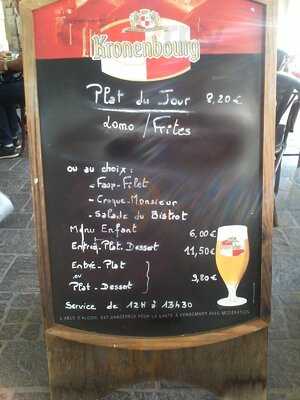 Kronenbourg
Plat du Jour 8,20€
Lomo / Frites
ou au choix :
- Faux-Filet
- Croque-Monsieur
- Salade du Bistrot
Menu Enfant 6,00€
Entrée. Plat. Dessert 11,50€
Entrée - Plat
ou 9,80€
Plat - Dessert
Service de 12H à 13H30
L'ABUS D'ALCOOL EST DANGEREUX POUR LA SANTÉ, À CONSOMMER AVEC MODÉRATION.